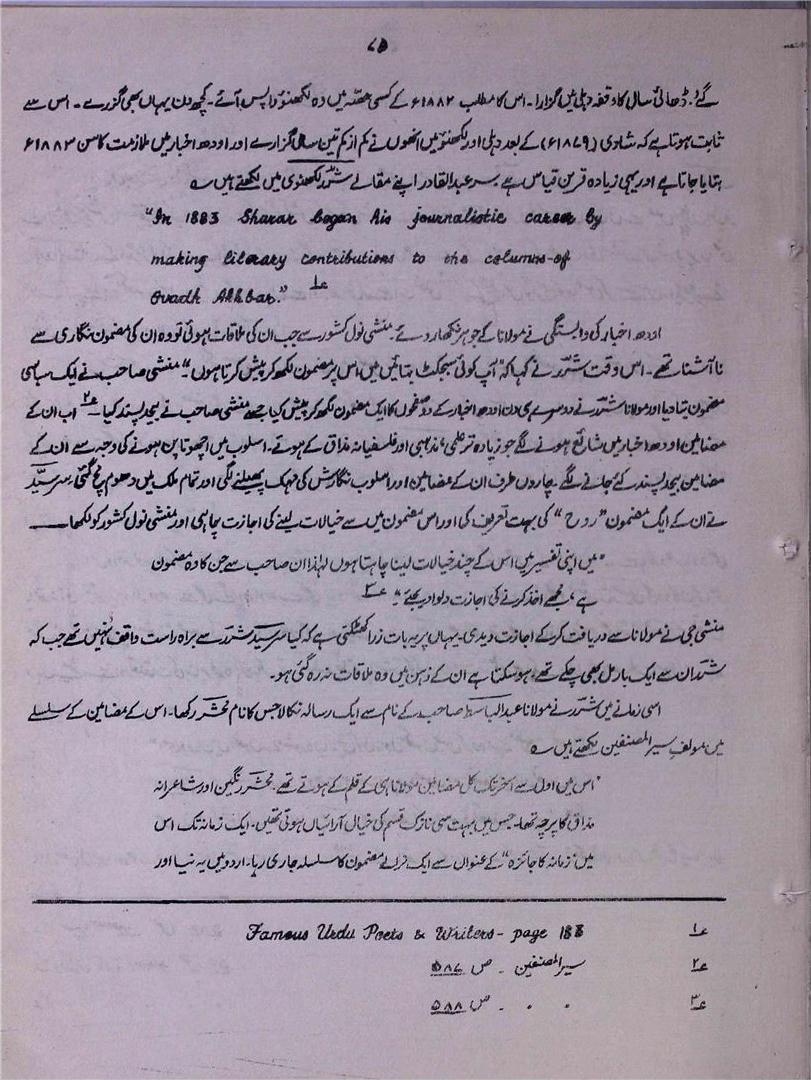 ۷۵
گئے۔ ڈھائی سال کا وقفہ دہلی میں گزارا۔ اس کا مطلب ۱۸۸۲ء کے کسی حصّہ میں وہ لکھنؤ واپس آئے۔ کچھ دن یہاں بھی گزرے۔ اس سے
ثابت ہوتا ہے کہ شادی (۱۸۷۹ء) کے بعد دہلی اور لکھنؤ میں انھوں نے کم از کم تین سال گزارے اور اودھ اخبار میں ملازمت کا سن ۱۸۸۳ء
بتایا جاتا ہے اور یہی زیادہ قرین قیاس ہے۔ سر عبدالقادر اپنے مقالے شرر لکھنوی میں لکھتے ہیں ؎
"In 1883 Sharar began his journalistic career by
making literary contributions to the columns of
Ovadh Akhbar." ۱؎
اودھ اخبار کی وابستگی نے مولانا کے جوہر نکھار دئے۔ منشی نول کشور سے جب ان کی ملاقات ہوئی تو وہ ان کی مضمون نگاری سے
نا آشنا تھے۔ اس وقت شرر نے کہا کہ "آپ کوئی سبجکٹ بتائیں میں اس پر مضمون لکھ کر پیش کرتا ہوں"۔ منشی صاحب نے ایک سیاسی
مضمون بتا دیا اور مولانا شرر نے دوسرے ہی دن اودھ اخبار کے دو صفحوں کا ایک مضمون لکھ کر پیش کیا جسے منشی صاحب نے بیحد پسند کیا۔ ۲؎ اب ان کے
مضامین اودھ اخبار میں شائع ہونے لگے جو زیادہ تر علمی، مذہبی اور فلسفیانہ مذاق کے ہوتے۔ اسلوب میں اچھوتا پن ہونے کی وجہ سے ان کے
مضامین بیحد پسند کئے جانے لگے۔ چاروں طرف ان کے مضامین اور اسلوب نگارش کی مہک پھیلنے لگی اور تمام ملک میں دھوم مچ گئی، سر سیّد
نے ان کے ایک مضمون "روح" کی بہت تعریف کی اور اس مضمون میں سے خیالات لینے کی اجازت چاہی اور منشی نول کشور کو لکھا ــــ
"میں اپنی تفسیر میں اس کے چند خیالات لینا چاہتا ہوں لہٰذا ان صاحب سے جن کا وہ مضمون
ہے، مجھے اخذ کرنے کی اجازت دلوا دیجئے"۔ ۳؎
منشی جی نے مولانا سے دریافت کر کے اجازت دیدی۔ یہاں پر یہ بات ذرا کھٹکتی ہے کہ کیا سر سید شرر سے براہ راست واقف نہیں تھے جب کہ
شرر ان سے ایک بار مل بھی چکے تھے، ہو سکتا ہے ان کے ذہن میں وہ ملاقات نہ رہ گئی ہو۔
اسی زمانے میں شرر نے مولانا عبدالباسط صاحب کے نام سے ایک رسالہ نکالا جس کا نام محشر رکھا۔ اس کے مضامین کے سلسلے
میں مولف سیر المصنفین لکھتے ہیں ؎
"اس میں اول سے آخر تک کل مضامین مولانا ہی کے قلم کے ہوتے تھے۔ محشر رنگین اور شاعرانہ
مذاق کا پرچہ تھا۔ جس میں بہت سی نازک قسم کی خیال آرائیاں ہوتی تھیں۔ ایک زمانہ تک اس
میں "زمانہ کا جائزہ" کے عنوان سے ایک نرالے مضمون کا سلسلہ جاری رہا۔ اردو میں یہ نیا اور
۱؎ Famous Urdu Poets & Writers - page 188
۲؎ سیر المصنفین ۔ ص ۵۸۷
۳؎ ۔ ۔ ۔ ص ۵۸۸